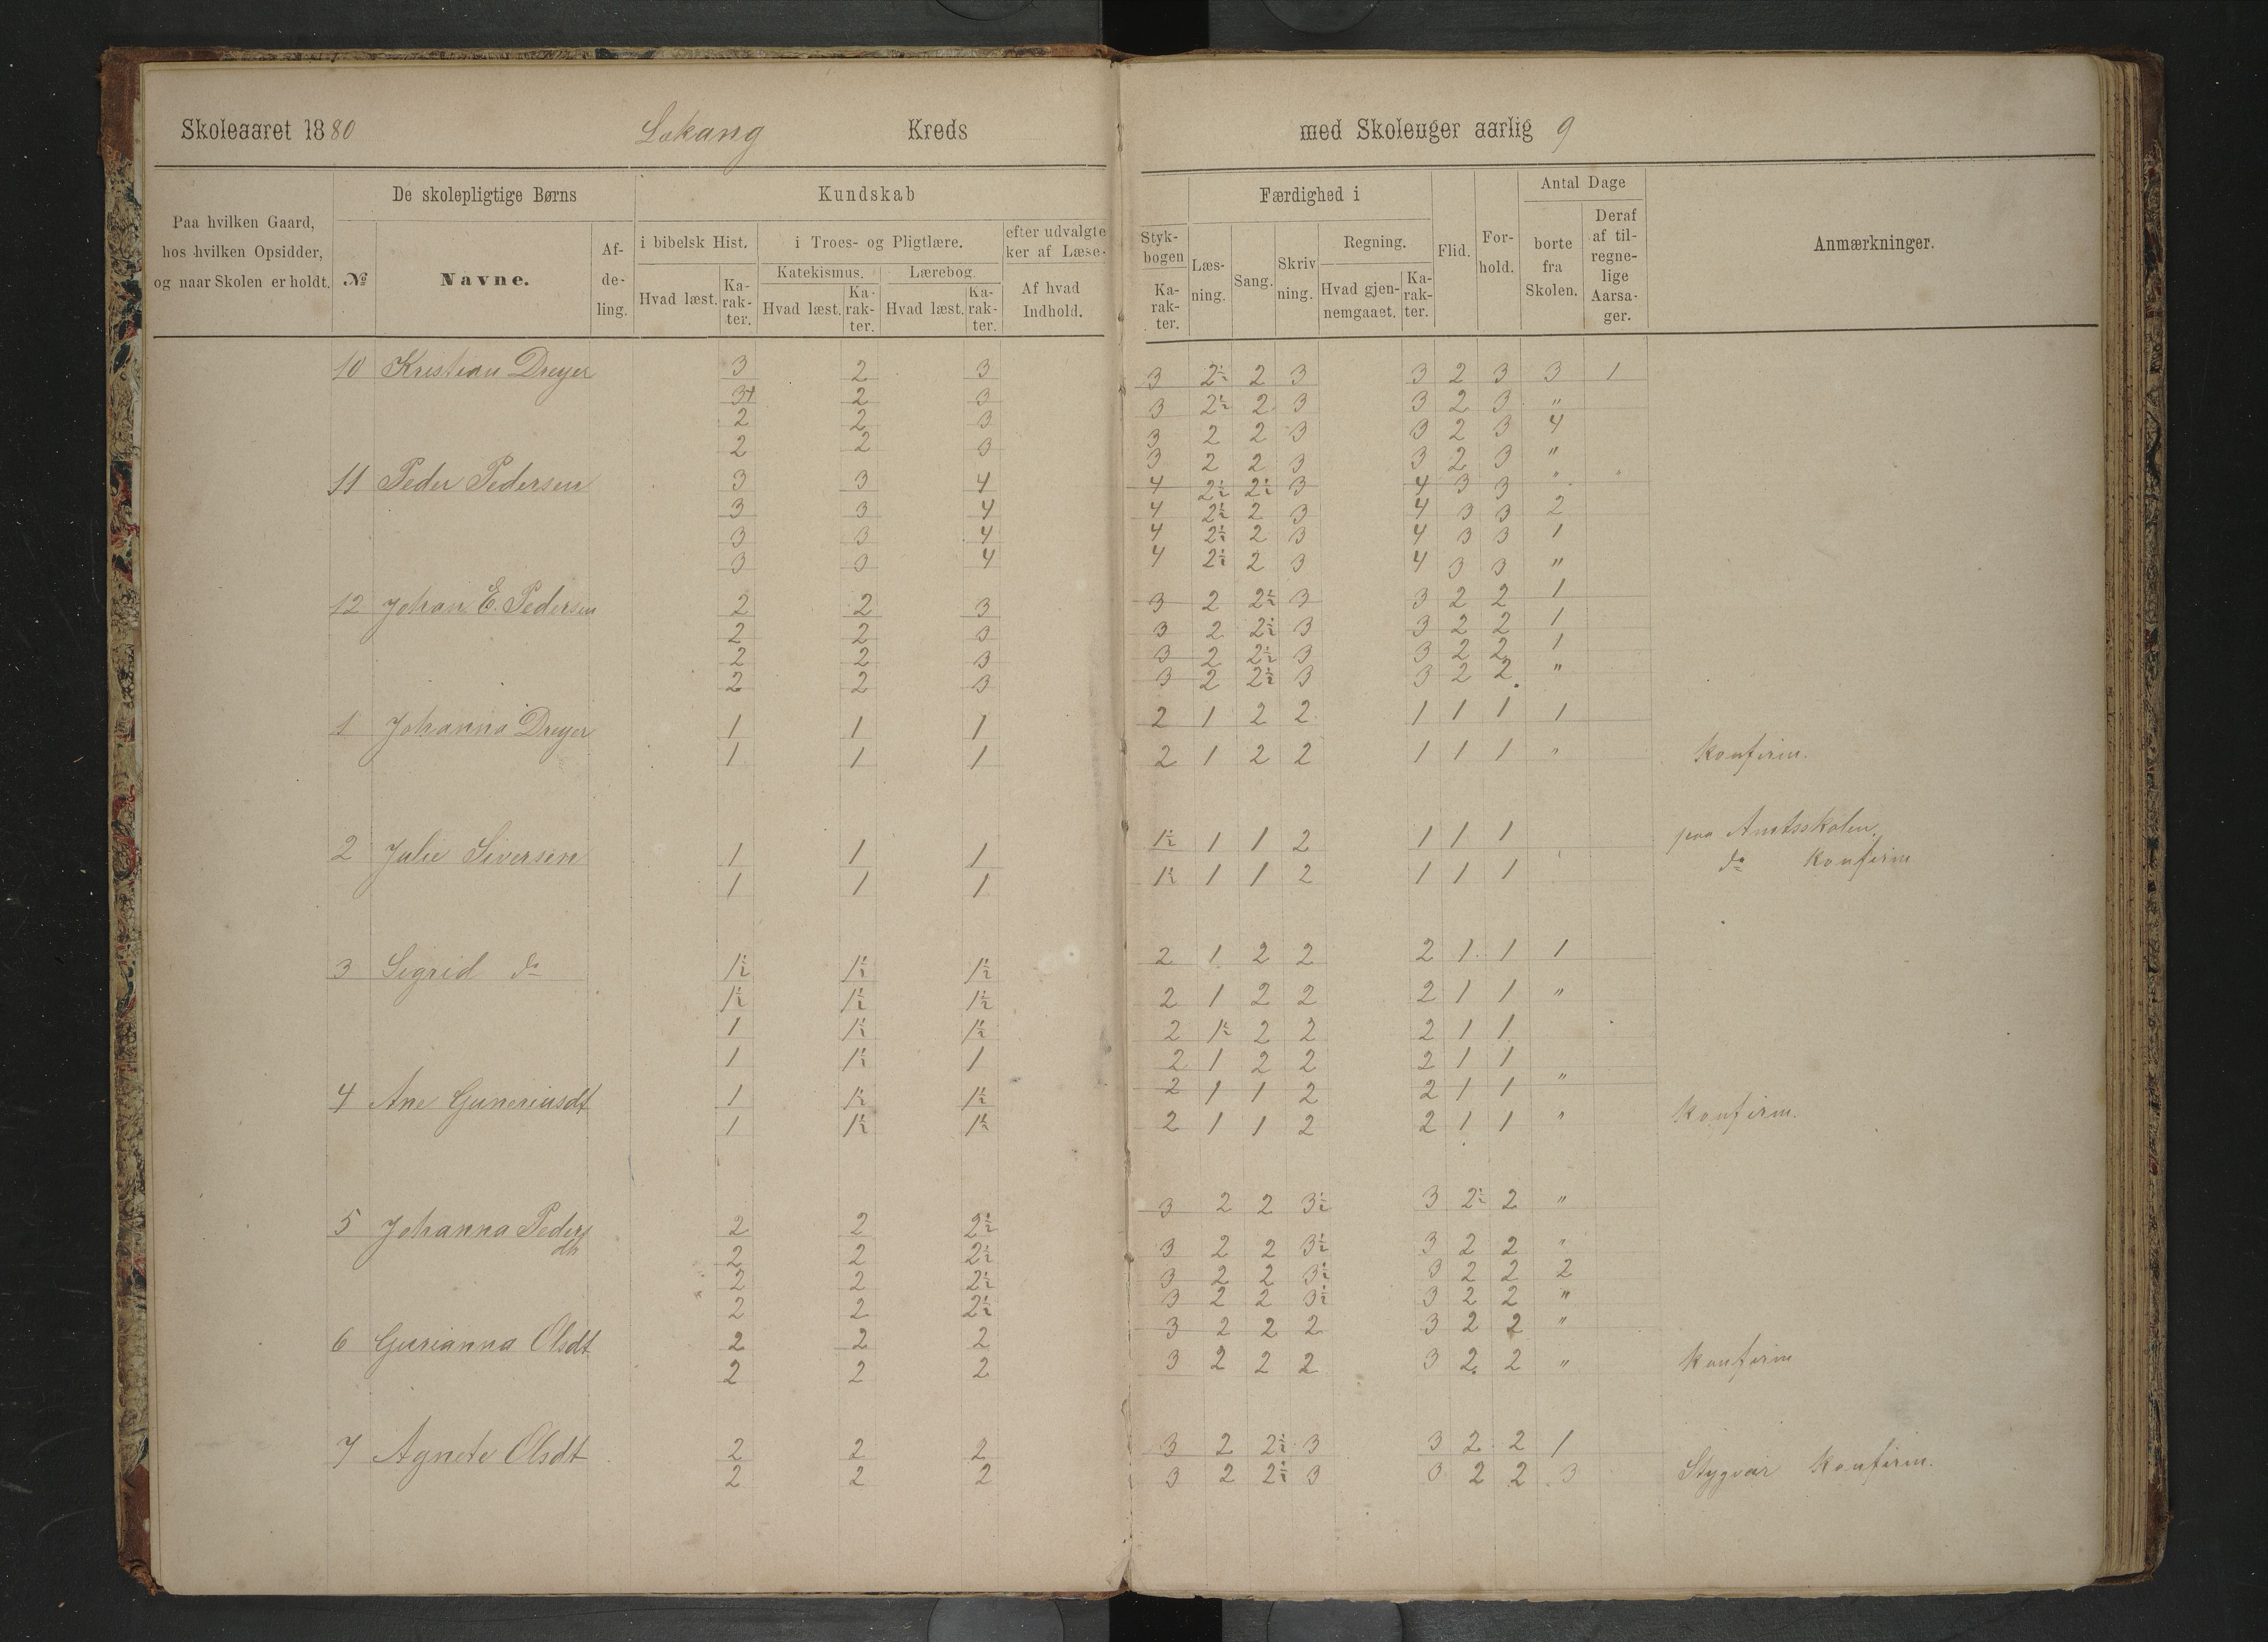 Skoleaaret 1880 Lekang Kreds med Skoleuger aarlig 9
Paa hvilken Gaard, hos hvilken Opsidder, og naar Skolen er holdt.
De skolepligtige Børns
№ Navne. Af-de-ling.
Kundskab
i bibelsk Hist. i Troes- og Pligtlære. efter udvalgte
ker af Læse-
Katekismus. Lærebog.
Hvad læst. Ka-rak-ter. Hvad læst. Ka-rak-ter. Hvad læst. Ka-rak-ter. Af hvad Indhold.
Styk-bogen Ka-rak-ter.
Færdighed i
Læs-ning. Sang. Skriv ning. Regning.
Hvad gjen-nemgaaet. Ka-rak-ter.
Flid. For-hold.
Antal Dage
borte fra Skolen. Deraf af til-regne-lige Aarsa-ger.
Anmærkninger.
10 Kristian Dreyer 3 2 3 3 2½ 2 3 3 2 3 3 1
3+ 2 3 3 2½ 2 3 3 2 3 "
2 2 3 3 2 2 3 3 2 3 4
2 2 3 3 2 2 3 3 2 3 "
11 Peder Pedersen 3 3 4 4 2½ 2½ 3 4 3 3 "
3 3 4 4 2½ 2 3 4 3 3 2
3 3 4 4 2½ 2 3 4 3 3 1
3 3 4 4 2½ 2 3 4 3 3 "
12 Johan E. Pedersen 2 2 3 3 2 2½ 3 3 2 2 1
2 2 3 3 2 2½ 3 3 2 2 1
2 2 3 3 2 2½ 3 3 2 2 1
2 2 3 3 2 2½ 3 3 2 2 "
1 Johanna Dreyer 1 1 1 2 1 2 2 1 1 1 1
1 1 1 2 1 2 2 1 1 1 " Konfirm.
2 Julie Siversen 1 1 1 1½ 1 1 2 1 1 1 paa Amtsskolen.
1 1 1 1½ 1 1 2 1 1 1 do Konfirm
3 Sigrid do 1½ 1½ 1½ 2 1 2 2 2 1 1 1
1½ 1½ 1½ 2 1 2 2 2 1 1 "
1 1½ 1½ 2 1½ 2 2 2 1 1
1 1½ 1 2 1 2 2 2 1 1
4 Ane Guneriusdt 1 1½ 1½ 2 1 1 2 2 1 1 "
1 1½ 1½ 2 1 1 2 2 1 1 " Konfirm.
5 Johanna Peders 2 2 2½ 3 2 2 3½ 3 2½ 2 "
dtr 2 2 2½ 3 2 2 3½ 3 2 2 "
2 2 2½ 3 2 2 3½ 3 2 2 2
2 2 2½ 3 2 2 3½ 3 2 2 "
6 Gurianna Olsdt 2 2 2 3 2 2 2 3 2 2 "
2 2 2 3 2 2 2 3 2 2 " Konfirm
7 Agnete Olsdt 2 2 2 3 2 2½ 3 3 2 2 1
2 2 2 3 2 2½ 3 3 2 2 3 Stygvær Konfirm.